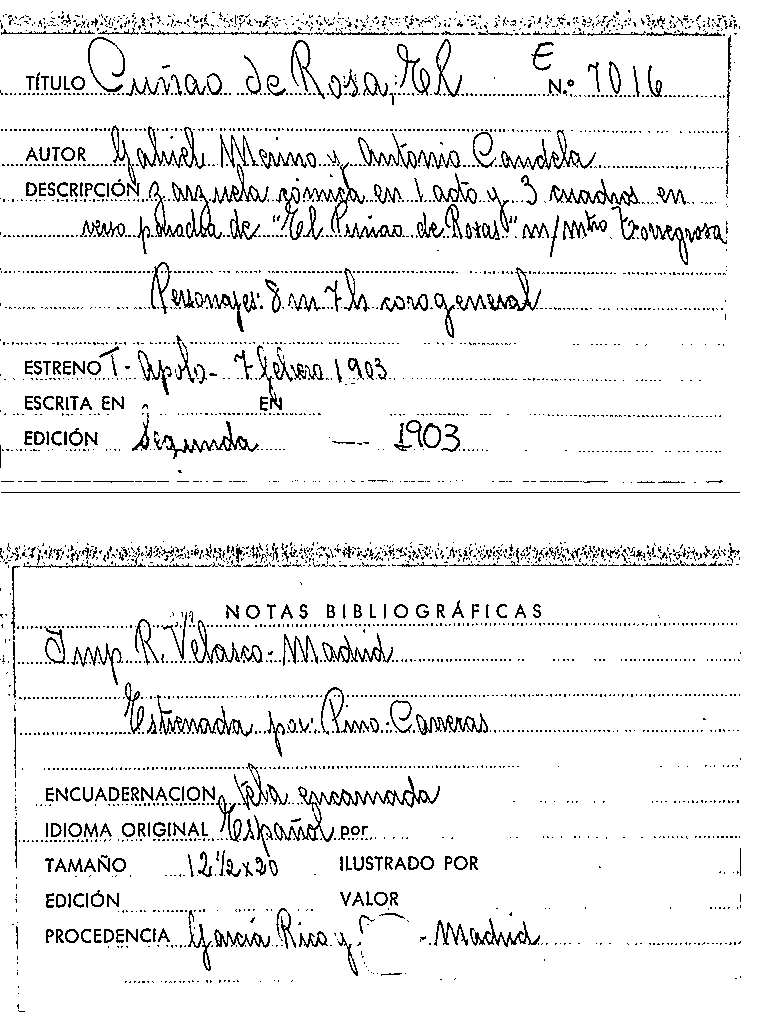 E
TÍTULO Cuñao de Rosa, El N.º 7016
AUTOR Gabriel Merino y Antonio Candela
DESCRIPCIÓN Zarzuela cómica en 1 acto y 3 cuadros en
verso parodia de "El Puñao de Rosas" m/mtro Torregrosa
Personajes: 8 m 7 h coro general
ESTRENO T. Apolo - 7 febrero 1903
ESCRITA EN EN
EDICIÓN Segunda — 1903
NOTAS BIBLIOGRÁFICAS
Imp R. Velasco - Madrid
Estrenada por: Pino - Carreras
ENCUADERNACION tela encarnada
IDIOMA ORIGINAL Español por
TAMAÑO 12 1/2 x 20 ILUSTRADO POR
EDICIÓN VALOR
PROCEDENCIA García Rico y - Madrid